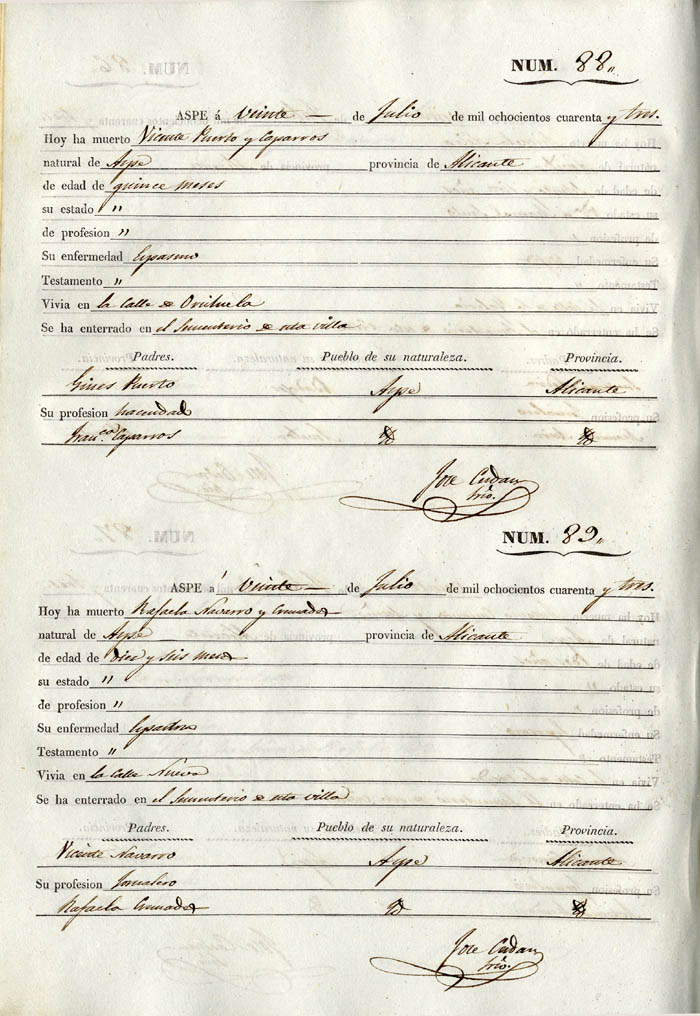 NUM. 88.
ASPE á Veinte — de Julio de mil ochocientos cuarenta y tres.
Hoy ha muerto Vicente Puerto y Caparros
natural de Aspe provincia de Alicante
de edad de quince meses
su estado "
de profesion "
Su enfermedad Espasmo
Testamento "
Vivia en la Calle de Orihuela
Se ha enterrado en el Sementerio de esta villa
Padres. Pueblo de su naturaleza. Provincia.
Gines Puerto Aspe Alicante
Su profesion hacendad
Fran.co Caparros
Jose Cerdan
NUM. 89.
ASPE á Veinte — de Julio de mil ochocientos cuarenta y tres.
Hoy ha muerto Rafaela Navarro y
natural de Aspe provincia de Alicante
de edad de diez y seis meses
su estado "
de profesion "
Su enfermedad
Testamento "
Vivia en la Calle Nueva
Se ha enterrado en el Sementerio de esta villa
Padres. Pueblo de su naturaleza. Provincia.
Vicente Navarro Aspe Alicante
Su profesion Jornalero
Rafaela
Jose Cerdan